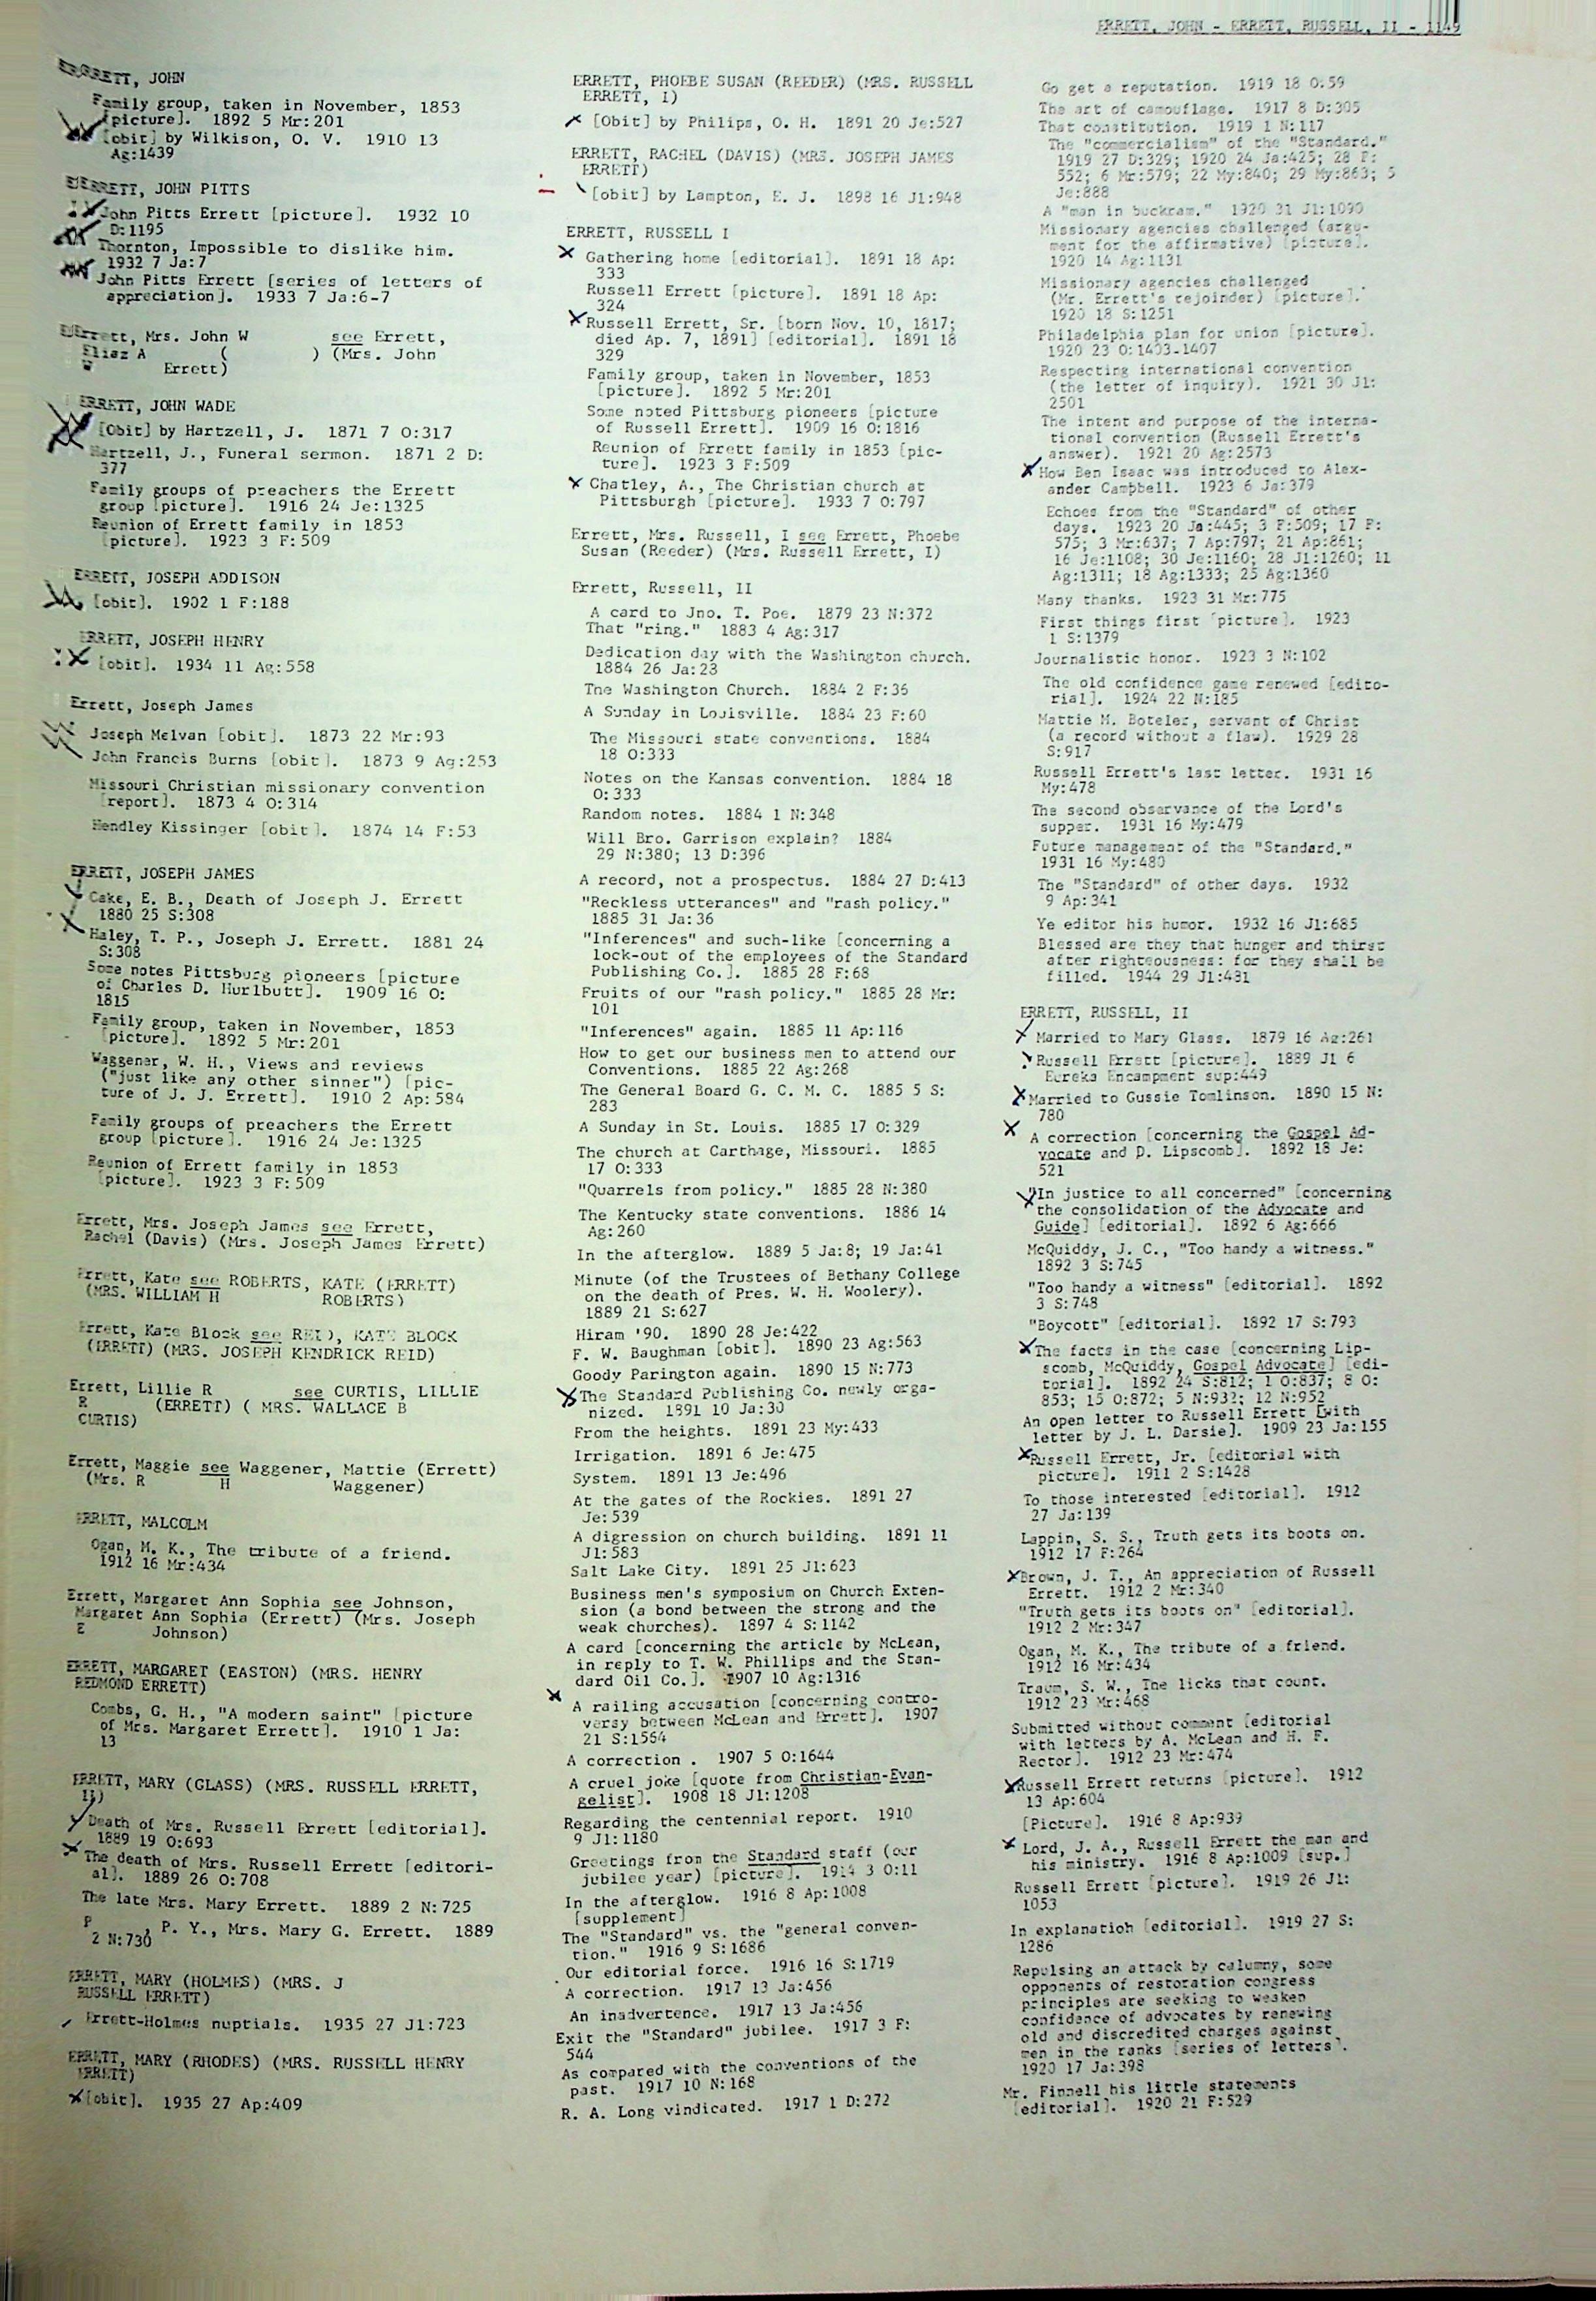 ERRETT, JOHN - ERRETT, RUSSELL, II - 1149
ERRETT, JOHN
Family group, taken in November, 1853
[picture]. 1892 5 Mr:201
[obit] by Wilkison, O. V. 1910 13
Ag:1439
ERRETT, JOHN PITTS
John Pitts Errett [picture]. 1932 10
D:1195
Thornton, Impossible to dislike him.
1932 7 Ja:7
John Pitts Errett [series of letters of
appreciation]. 1933 7 Ja:6-7
Errett, Mrs. John W see Errett,
Eliaz A ( ) (Mrs. John
W Errett)
ERRETT, JOHN WADE
[Obit] by Hartzell, J. 1871 7 O:317
Hartzell, J., Funeral sermon. 1871 2 D:
377
Family groups of preachers the Errett
group [picture]. 1916 24 Je:1325
Reunion of Errett family in 1853
[picture]. 1923 3 F:509
ERRETT, JOSEPH ADDISON
[obit]. 1902 1 F:188
ERRETT, JOSEPH HENRY
[obit]. 1934 11 Ag:558
Errett, Joseph James
Joseph Melvan [obit]. 1873 22 Mr:93
John Francis Burns [obit]. 1873 9 Ag:253
Missouri Christian missionary convention
[report]. 1873 4 O:314
Hendley Kissinger [obit]. 1874 14 F:53
ERRETT, JOSEPH JAMES
Cake, E. B., Death of Joseph J. Errett
1880 25 S:308
Haley, T. P., Joseph J. Errett. 1881 24
S:308
Some notes Pittsburg pioneers [picture
of Charles D. Hurlbutt]. 1909 16 O:
1815
Family group, taken in November, 1853
[picture]. 1892 5 Mr:201
Waggener, W. H., Views and reviews
("just like any other sinner") [pic-
ture of J. J. Errett]. 1910 2 Ap:584
Family groups of preachers the Errett
group [picture]. 1916 24 Je:1325
Reunion of Errett family in 1853
[picture]. 1923 3 F:509
Errett, Mrs. Joseph James see Errett,
Rachel (Davis) (Mrs. Joseph James Errett)
Errett, Kate see ROBERTS, KATE (ERRETT)
(MRS. WILLIAM H ROBERTS)
Errett, Kate Block see REID, KATE BLOCK
(ERRETT) (MRS. JOSEPH KENDRICK REID)
Errett, Lillie R see CURTIS, LILLIE
R (ERRETT) ( MRS. WALLACE B
CURTIS)
Errett, Maggie see Waggener, Mattie (Errett)
(Mrs. R H Waggener)
ERRETT, MALCOLM
Ogan, M. K., The tribute of a friend.
1912 16 Mr:434
Errett, Margaret Ann Sophia see Johnson,
Margaret Ann Sophia (Errett) (Mrs. Joseph
E Johnson)
ERRETT, MARGARET (EASTON) (MRS. HENRY
REDMOND ERRETT)
Combs, G. H., "A modern saint" [picture
of Mrs. Margaret Errett]. 1910 1 Ja:
13
ERRETT, MARY (GLASS) (MRS. RUSSELL ERRETT,
II)
Death of Mrs. Russell Errett [editorial].
1889 19 O:693
The death of Mrs. Russell Errett [editori-
al]. 1889 26 O:708
The late Mrs. Mary Errett. 1889 2 N:725
P , P. Y., Mrs. Mary G. Errett. 1889
2 N:730
ERRETT, MARY (HOLMES) (MRS. J
RUSSELL ERRETT)
Errett-Holmes nuptials. 1935 27 Jl:723
ERRETT, MARY (RHODES) (MRS. RUSSELL HENRY
ERRETT)
[obit]. 1935 27 Ap:409
ERRETT, PHOEBE SUSAN (REEDER) (MRS. RUSSELL
ERRETT, I)
[Obit] by Philips, O. H. 1891 20 Je:527
ERRETT, RACHEL (DAVIS) (MRS. JOSEPH JAMES
ERRETT)
[obit] by Lampton, E. J. 1898 16 Jl:948
ERRETT, RUSSELL I
Gathering home [editorial]. 1891 18 Ap:
333
Russell Errett [picture]. 1891 18 Ap:
324
Russell Errett, Sr. [born Nov. 10, 1817;
died Ap. 7, 1891] [editorial]. 1891 18
329
Family group, taken in November, 1853
[picture]. 1892 5 Mr:201
Some noted Pittsburg pioneers [picture
of Russell Errett]. 1909 16 O:1816
Reunion of Errett family in 1853 [pic-
ture]. 1923 3 F:509
Chatley, A., The Christian church at
Pittsburgh [picture]. 1933 7 O:797
Errett, Mrs. Russell, I see Errett, Phoebe
Susan (Reeder) (Mrs. Russell Errett, I)
Errett, Russell, II
A card to Jno. T. Poe. 1879 23 N:372
That "ring." 1883 4 Ag:317
Dedication day with the Washington church.
1884 26 Ja:23
The Washington Church. 1884 2 F:36
A Sunday in Louisville. 1884 23 F:60
The Missouri state conventions. 1884
18 O:333
Notes on the Kansas convention. 1884 18
O:333
Random notes. 1884 1 N:348
Will Bro. Garrison explain? 1884
29 N:380; 13 D:396
A record, not a prospectus. 1884 27 D:413
"Reckless utterances" and "rash policy."
1885 31 Ja:36
"Inferences" and such-like [concerning a
lock-out of the employees of the Standard
Publishing Co.]. 1885 28 F:68
Fruits of our "rash policy." 1885 28 Mr:
101
"Inferences" again. 1885 11 Ap:116
How to get our business men to attend our
Conventions. 1885 22 Ag:268
The General Board G. C. M. C. 1885 5 S:
283
A Sunday in St. Louis. 1885 17 O:329
The church at Carthage, Missouri. 1885
17 O:333
"Quarrels from policy." 1885 28 N:380
The Kentucky state conventions. 1886 14
Ag:260
In the afterglow. 1889 5 Ja:8; 19 Ja:41
Minute (of the Trustees of Bethany College
on the death of Pres. W. H. Woolery).
1889 21 S:627
Hiram '90. 1890 28 Je:422
F. W. Baughman [obit]. 1890 23 Ag:563
Goody Parington again. 1890 15 N:773
The Standard Publishing Co. newly orga-
nized. 1891 10 Ja:30
From the heights. 1891 23 My:433
Irrigation. 1891 6 Je:475
System. 1891 13 Je:496
At the gates of the Rockies. 1891 27
Je:539
A digression on church building. 1891 11
Jl:583
Salt Lake City. 1891 25 Jl:623
Business men's symposium on Church Exten-
sion (a bond between the strong and the
weak churches). 1897 4 S:1142
A card [concerning the article by McLean,
in reply to T. W. Phillips and the Stan-
dard Oil Co.]. 1907 10 Ag:1316
A railing accusation [concerning contro-
versy between McLean and Errett]. 1907
21 S:1564
A correction . 1907 5 O:1644
A cruel joke [quote from Christian-Evan-
gelist]. 1908 18 Jl:1208
Regarding the centennial report. 1910
9 Jl:1180
Greetings from the Standard staff (our
jubilee year) [picture]. 1914 3 O:11
In the afterglow. 1916 8 Ap:1008
[supplement]
The "Standard" vs. the "general conven-
tion." 1916 9 S:1686
Our editorial force. 1916 16 S:1719
A correction. 1917 13 Ja:456
An inadvertence. 1917 13 Ja:456
Exit the "Standard" jubilee. 1917 3 F:
544
As compared with the conventions of the
past. 1917 10 N:168
R. A. Long vindicated. 1917 1 D:272
Go get a reputation. 1919 18 O:59
The art of camouflage. 1917 8 D:305
That constitution. 1919 1 N:117
The "commercialism" of the "Standard."
1919 27 D:329; 1920 24 Ja:425; 28 F:
552; 6 Mr:579; 22 My:840; 29 My:863; 5
Je:888
A "man in buckram." 1920 31 Jl:1090
Missionary agencies challenged (argu-
ment for the affirmative) [picture].
1920 14 Ag:1131
Missionary agencies challenged
(Mr. Errett's rejoinder) [picture].
1920 18 S:1251
Philadelphia plan for union [picture].
1920 23 O:1403-1407
Respecting international convention
(the letter of inquiry). 1921 30 Jl:
2501
The intent and purpose of the interna-
tional convention (Russell Errett's
answer). 1921 20 Ag:2573
How Ben Isaac was introduced to Alex-
ander Campbell. 1923 6 Ja:379
Echoes from the "Standard" of other
days. 1923 20 Ja:445; 3 F:509; 17 F:
575; 3 Mr:637; 7 Ap:797; 21 Ap:861;
16 Je:1108; 30 Je:1160; 28 Jl:1260; 11
Ag:1311; 18 Ag:1333; 25 Ag:1360
Many thanks. 1923 31 Mr:775
First things first [picture]. 1923
1 S:1379
Journalistic honor. 1923 3 N:102
The old confidence game renewed [edito-
rial]. 1924 22 N:185
Mattie M. Boteler, servant of Christ
(a record without a flaw). 1929 28
S:917
Russell Errett's last letter. 1931 16
My:478
The second observance of the Lord's
supper. 1931 16 My:479
Future management of the "Standard."
1931 16 My:480
The "Standard" of other days. 1932
9 Ap:341
Ye editor his humor. 1932 16 Jl:685
Blessed are they that hunger and thirst
after righteousness: for they shall be
filled. 1944 29 Jl:481
ERRETT, RUSSELL, II
Married to Mary Glass. 1879 16 Ag:261
Russell Errett [picture]. 1889 Jl 6
Eureka Encampment sup:449
Married to Gussie Tomlinson. 1890 15 N:
780
A correction [concerning the Gospel Ad-
vocate and D. Lipscomb]. 1892 18 Je:
521
"In justice to all concerned" [concerning
the consolidation of the Advocate and
Guide] [editorial]. 1892 6 Ag:666
McQuiddy, J. C., "Too handy a witness."
1892 3 S:745
"Too handy a witness" [editorial]. 1892
3 S:748
"Boycott" [editorial]. 1892 17 S:793
The facts in the case [concerning Lip-
scomb, McQuiddy, Gospel Advocate] [edi-
torial]. 1892 24 S:812; 1 O:837; 8 O:
853; 15 O:872; 5 N:932; 12 N:952
An open letter to Russell Errett [with
letter by J. L. Darsie]. 1909 23 Ja:155
Russell Errett, Jr. [editorial with
picture]. 1911 2 S:1428
To those interested [editorial]. 1912
27 Ja:139
Lappin, S. S., Truth gets its boots on.
1912 17 F:264
Brown, J. T., An appreciation of Russell
Errett. 1912 2 Mr:340
"Truth gets its boots on" [editorial].
1912 2 Mr:347
Ogan, M. K., The tribute of a friend.
1912 16 Mr:434
Traum, S. W., The licks that count.
1912 23 Mr:468
Submitted without comment [editorial
with letters by A. McLean and H. F.
Rector]. 1912 23 Mr:474
Russell Errett returns [picture]. 1912
13 Ap:604
[Picture]. 1916 8 Ap:939
Lord, J. A., Russell Errett the man and
his ministry. 1916 8 Ap:1009 [sup.]
Russell Errett [picture]. 1919 26 Jl:
1053
In explanation [editorial]. 1919 27 S:
1286
Repulsing an attack by calumny, some
opponents of restoration congress
principles are seeking to weaken
confidence of advocates by renewing
old and discredited charges against
men in the ranks [series of letters].
1920 17 Ja:398
Mr. Finnell his little statements
[editorial]. 1920 21 F:529